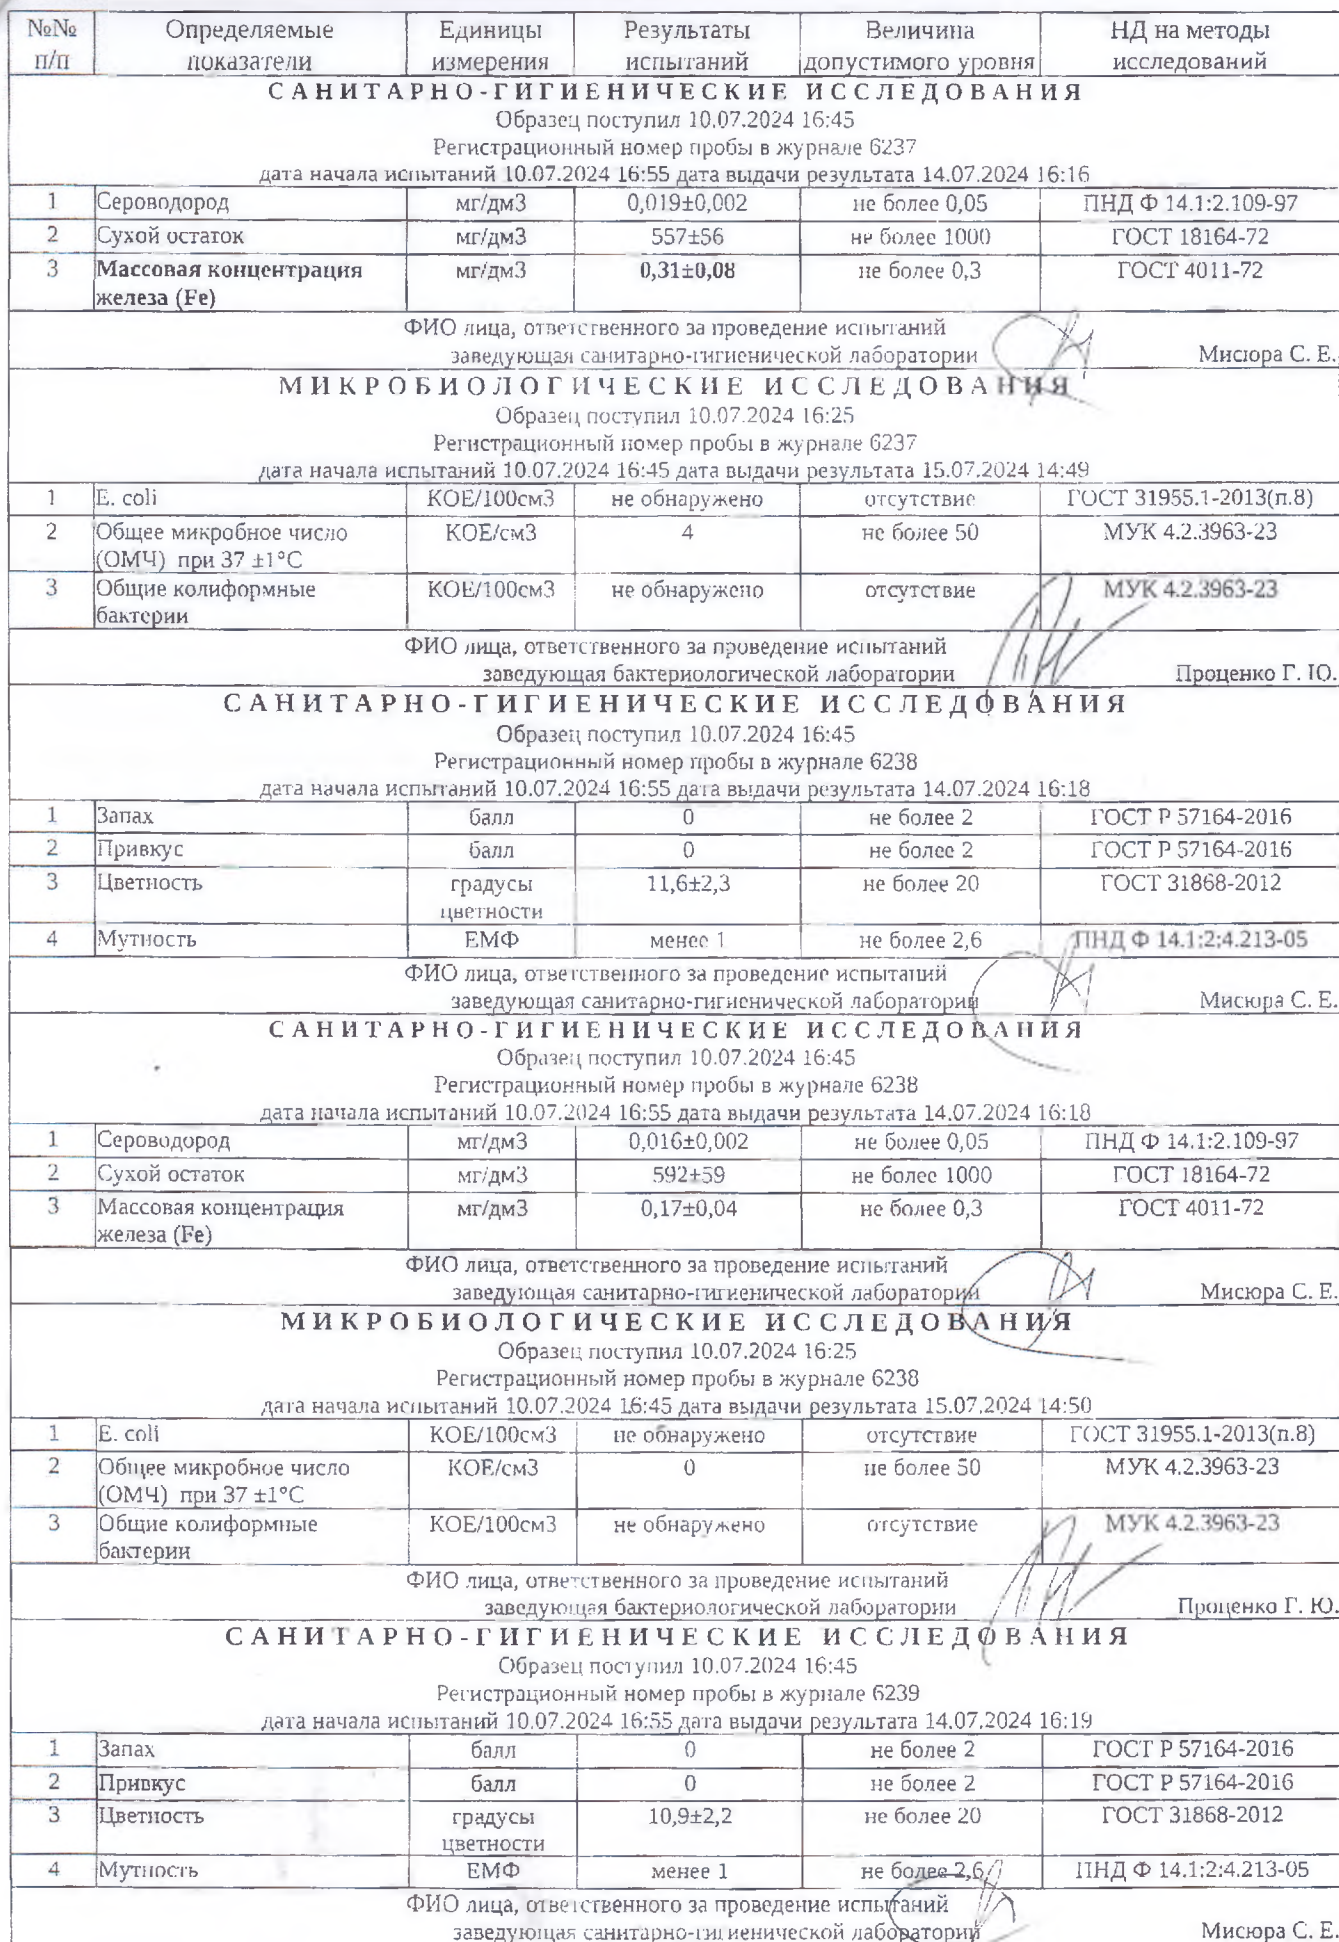 №№ Определяемые Единицы Результаты Величина НД на методы
п/п показатели измерения испытаний допустимого уровня исследований
САНИТАРНО-ГИГИЕНИЧЕСКИЕ ИССЛЕДОВАНИЯ
Образец поступил 10.07.2024 16:45
Регистрационный номер пробы в журнале 6237
дата начала испытаний 10.07.2024 16:55 дата выдачи результата 14.07.2024 16:16
1 Сероводород мг/дм3 0,019±0,002 не более 0,05 ПНД Ф 14.1:2.109-97
2 Сухой остаток мг/дм3 557±56 не более 1000 ГОСТ 18164-72
3 Массовая концентрация мг/дм3 0,31±0,08 не более 0,3 ГОСТ 4011-72
железа (Fe)
ФИО лица, ответственного за проведение испытаний
заведующая санитарно-гигиенической лаборатории Мисюра С. Е.
МИКРОБИОЛОГИЧЕСКИЕ ИССЛЕДОВАНИЯ
Образец поступил 10.07.2024 16:25
Регистрационный номер пробы в журнале 6237
дата начала испытаний 10.07.2024 16:45 дата выдачи результата 15.07.2024 14:49
1 E. coli КОЕ/100см3 не обнаружено отсутствие ГОСТ 31955.1-2013(п.8)
2 Общее микробное число КОЕ/см3 4 не более 50 МУК 4.2.3963-23
(ОМЧ) при 37 ±1°С
3 Общие колиформные КОЕ/100см3 не обнаружено отсутствие МУК 4.2.3963-23
бактерии
ФИО лица, ответственного за проведение испытаний
заведующая бактериологической лаборатории Проценко Г. Ю.
САНИТАРНО-ГИГИЕНИЧЕСКИЕ ИССЛЕДОВАНИЯ
Образец поступил 10.07.2024 16:45
Регистрационный номер пробы в журнале 6238
дата начала испытаний 10.07.2024 16:55 дата выдачи результата 14.07.2024 16:18
1 Запах балл 0 не более 2 ГОСТ Р 57164-2016
2 Привкус балл 0 не более 2 ГОСТ Р 57164-2016
3 Цветность градусы 11,6±2,3 не более 20 ГОСТ 31868-2012
цветности
4 Мутность ЕМФ менее 1 не более 2,6 ПНД Ф 14.1:2:4.213-05
ФИО лица, ответственного за проведение испытаний
заведующая санитарно-гигиенической лаборатории Мисюра С. Е.
САНИТАРНО-ГИГИЕНИЧЕСКИЕ ИССЛЕДОВАНИЯ
Образец поступил 10.07.2024 16:45
Регистрационный номер пробы в журнале 6238
дата начала испытаний 10.07.2024 16:55 дата выдачи результата 14.07.2024 16:18
1 Сероводород мг/дм3 0,016±0,002 не более 0,05 ПНД Ф 14.1:2.109-97
2 Сухой остаток мг/дм3 592±59 не более 1000 ГОСТ 18164-72
3 Массовая концентрация мг/дм3 0,17±0,04 не более 0,3 ГОСТ 4011-72
железа (Fe)
ФИО лица, ответственного за проведение испытаний
заведующая санитарно-гигиенической лаборатории Мисюра С. Е.
МИКРОБИОЛОГИЧЕСКИЕ ИССЛЕДОВАНИЯ
Образец поступил 10.07.2024 16:25
Регистрационный номер пробы в журнале 6238
дата начала испытаний 10.07.2024 16:45 дата выдачи результата 15.07.2024 14:50
1 E. coli КОЕ/100см3 не обнаружено отсутствие ГОСТ 31955.1-2013(п.8)
2 Общее микробное число КОЕ/см3 0 не более 50 МУК 4.2.3963-23
(ОМЧ) при 37 ±1°С
3 Общие колиформные КОЕ/100см3 не обнаружено отсутствие МУК 4.2.3963-23
бактерии
ФИО лица, ответственного за проведение испытаний
заведующая бактериологической лаборатории Проценко Г. Ю.
САНИТАРНО-ГИГИЕНИЧЕСКИЕ ИССЛЕДОВАНИЯ
Образец поступил 10.07.2024 16:45
Регистрационный номер пробы в журнале 6239
дата начала испытаний 10.07.2024 16:55 дата выдачи результата 14.07.2024 16:19
1 Запах балл 0 не более 2 ГОСТ Р 57164-2016
2 Привкус балл 0 не более 2 ГОСТ Р 57164-2016
3 Цветность градусы 10,9±2,2 не более 20 ГОСТ 31868-2012
цветности
4 Мутность ЕМФ менее 1 не более 2,6 ПНД Ф 14.1:2:4.213-05
ФИО лица, ответственного за проведение испытаний
заведующая санитарно-гигиенической лаборатории Мисюра С. Е.